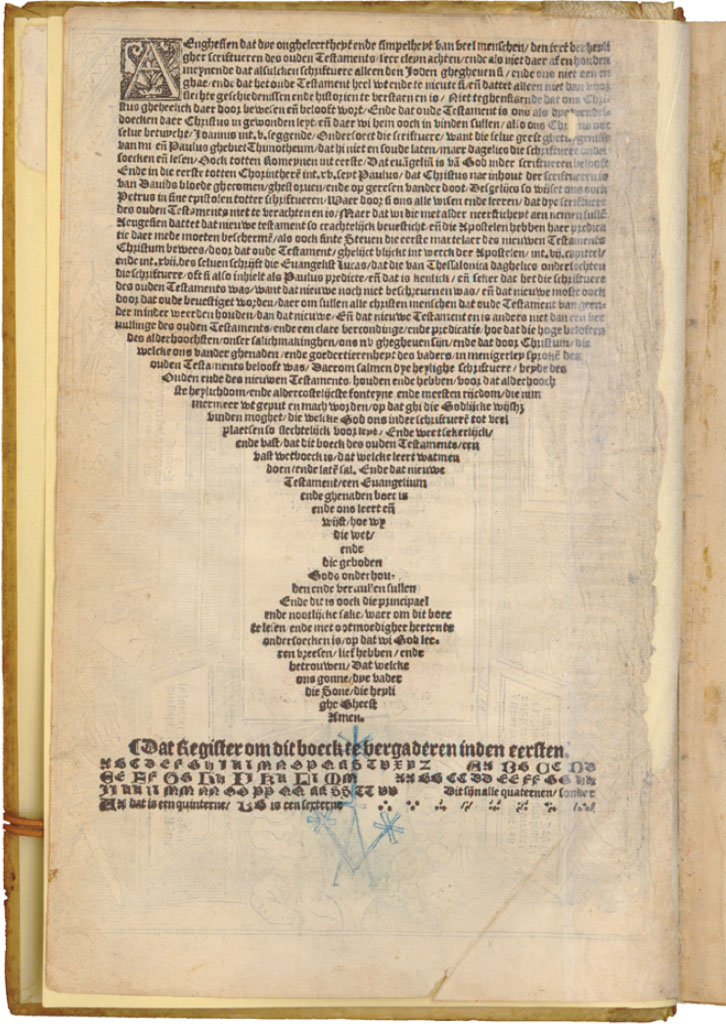 AEnghesien dat dye ongheleertheyt ende simpelheyt van veel menschen/ den text der heyli
gher scriftueren des ouden Testaments/ seer cleyn achten/ ende als niet daer af en houden
meynende dat alsulcken schriftuere alleen den Joden ghegheuen si/ ende ons niet een en
ghae/ ende dat het oude Testament heel wt ende te nieute si/ en̄ dattet alleen niet dan
slechte geschiedenissen ende historien te verstaen en is/ Niet teghenstaende dat ons Chri-
stus gheheelick daer door bewesen en̄ belooft wort/ Ende dat oude Testament is ons als dye
doecken daer Christus in gewonden leyt/ en̄ daer wi hem oock in vinden sullen/ also ons Christus
selue betuycht/ Joannis int .v. seggende/ Ondersoect die scriftuere/ want die selue geeft
van mi en̄ Paulus ghebiet Thimotheum/ dat hi niet en soude laten/ maer dagelics die schriftuere onder
soecken en̄ lesen/ Oock totten Romeynen int eerste/ Dat euāgeliū is vā God inder scriftueren belooft
Ende in die eerste totten Chorintheren int .xv. seyt Paulus/ dat Christus nae inhout der scriftueren is
van Dauids bloede ghecomen/ ghestoruen/ ende op geresen vander doot. Desgelijcs so wijset ons oock
Petrus in sine epistolen totter schriftueren/ Waer door si ons alle wisen ende leeren/ dat dye scriftuere
des ouden Testaments niet te verachten en is/ Maer dat wi die met alder neersticheyt aen nemen sullē
Aengesien dattet dat nieuwe testament so crachtelijck beuesticht/ en̄ die Apostelen hebben haer predica
tie daer mede moeten beschermē/ als oock sinte Steuen die eerste martelaer des nieuwen Testaments
Christum bewees/ door dat oude Testament/ ghelijct blijckt int werck der Apostelen/ int .vij. capittel/
ende int .xvij. des seluen schrijft die Euangelist Lucas/ dat die van Thessalonica daghelics ondersochten
die schriftuere/ oft si also inhielt als Paulus predicte/ en̄ dat is kenlick/ en̄ seker dat het die schriftuere
des ouden Testaments was/ want dat nieuwe noch niet beschreuen en was/ en̄ dat nieuwe moste oock
door dat oude beuestiget worden/ daer om sullen alle christen menschen dat oude Testament van geen-
der minder weerden houden/ dan dat nieuwe/ En̄ dat nieuwe Testament en is anders niet dan een
uullinge des ouden Testaments/ ende een clare vercondinge/ ende predicatie/ hoe dat die hoge beloften
des alderhoochsten/ onser salichmakinghen/ ons nv ghegheuen sijn/ ende dat door Christum/ die
welcke ons vander ghenaden/ ende goedertierenheyt des vaders/ in menigerley sprokē des
ouden Testaments belooft was/ Daerom salmen dye heylighe schriftuere/ beyde des
Ouden ende des nieuwen Testaments/ houden ende hebben/ voor dat alderhooch
ste heylichdom/ ende aldercostelijcste fonteyne ende meesten rijcdom/ die nim
mermeer wt geput en mach worden/ op dat ghi die Godlijcke wijsheyt
vinden moghet/ die welcke God ons inder schriftuerē tot veel
plaetsen so slechtelijck voor leyt/ Ende weet sekerlijck/
ende vast/ dat dit boeck des ouden Testaments/ een
vast wetboeck is/ dat welcke leert watmen
doen/ ende latē sal. Ende dat nieuwe
Testament/ een Euangelium
ende ghenaden boec is
ende ons leert en̄
wijst/ hoe wy
die wet/
ende
die geboden
Gods onderhou-
den ende veruullen sullen
Ende dit is oock die principael
ende nootlijcke sake/ waer om dit boec
te lesen/ ende met ootmoedigher herten te
ondersoecken is/ op dat wi God lee-
ren vreesen/ lief hebben/ ende
betrouwen/ Dat welcke
ons gonne/ dye vader
die Sone/ die heyli
ghe Gheest
Amen.
Dat Register om dit boeck te vergaderen inden eersten.
A B C D E F G H I K L M N O P Q R S T V X Y Z AA BB CC DD
EE FF GG HH II KK LL MM AA BB CC DD EE FF GG HH
II KK LL MM NN OO PP QQ RR SS TT VV Dit sijn alle quaternen/ sonder
dat is een quinterne/ is een sexterne